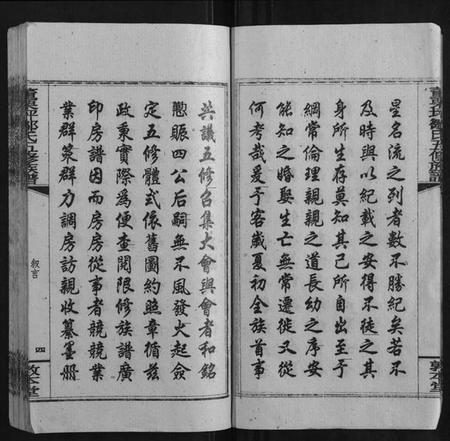 星名流之列者數不勝紀矣若不
及時與以紀載之安得不徒之其
身所生存莫知其已所自出至于
綱常倫理親親之道長幼之序安
能知之婚娶生亡無常遷徙又從
何考哉爰于客歲夏初全族首事
共議五修召集大會與會者和銘
懃賜四公后嗣無不風發火起僉
定五修體式依舊圖約照章循茲
政東實際為便查閱限修族譜廣
印房譜因而房房從事者競競業
業群策群力調房訪親收纂墨冊
敘言
四
敦本堂
敦本堂